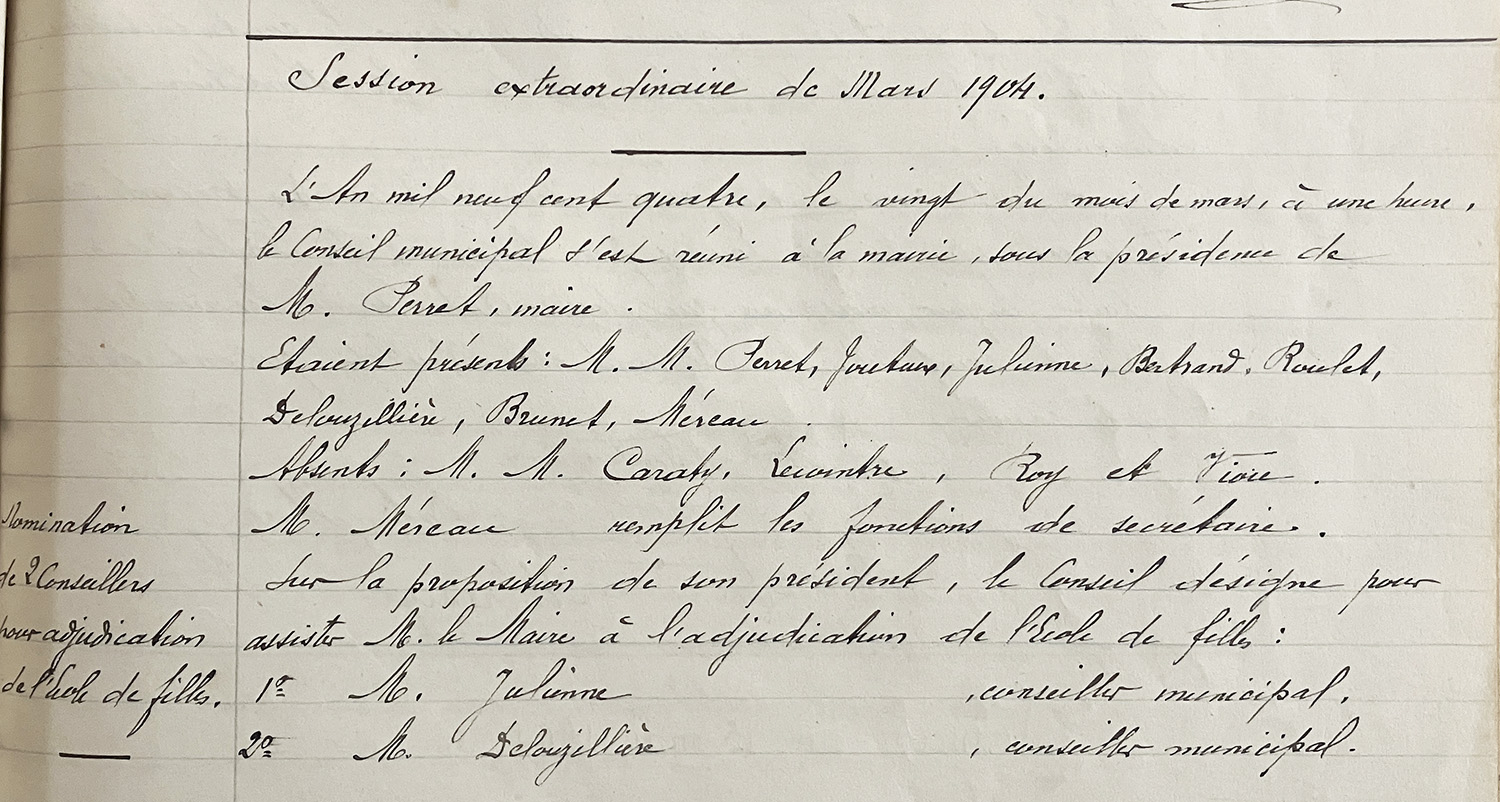 Session extraordinaire de Mars 1904.
L'An mil neuf cent quatre, le vingt du mois de mars, à une heure,
le Conseil municipal s'est réuni à la mairie, sous la présidence de
M. Perret, maire.
Etaient présents : M. M. Perret, Joutaux, Julienne, Bertrand, Roulet,
Delouzillière, Brunet, Méreau.
Absents : M. M. Caraty, Lecointre, Roy et
M. Méreau remplit les fonctions de secrétaire.
Nomination
de 2 Conseillers
pour adjudication
de l'Ecole de filles.
Sur la proposition de son président, le Conseil désigne pour
assister M. le Maire à l'adjudication de l'Ecole de filles :
1º M. Julienne, conseiller municipal.
2º M. Delouzillière, conseiller municipal.